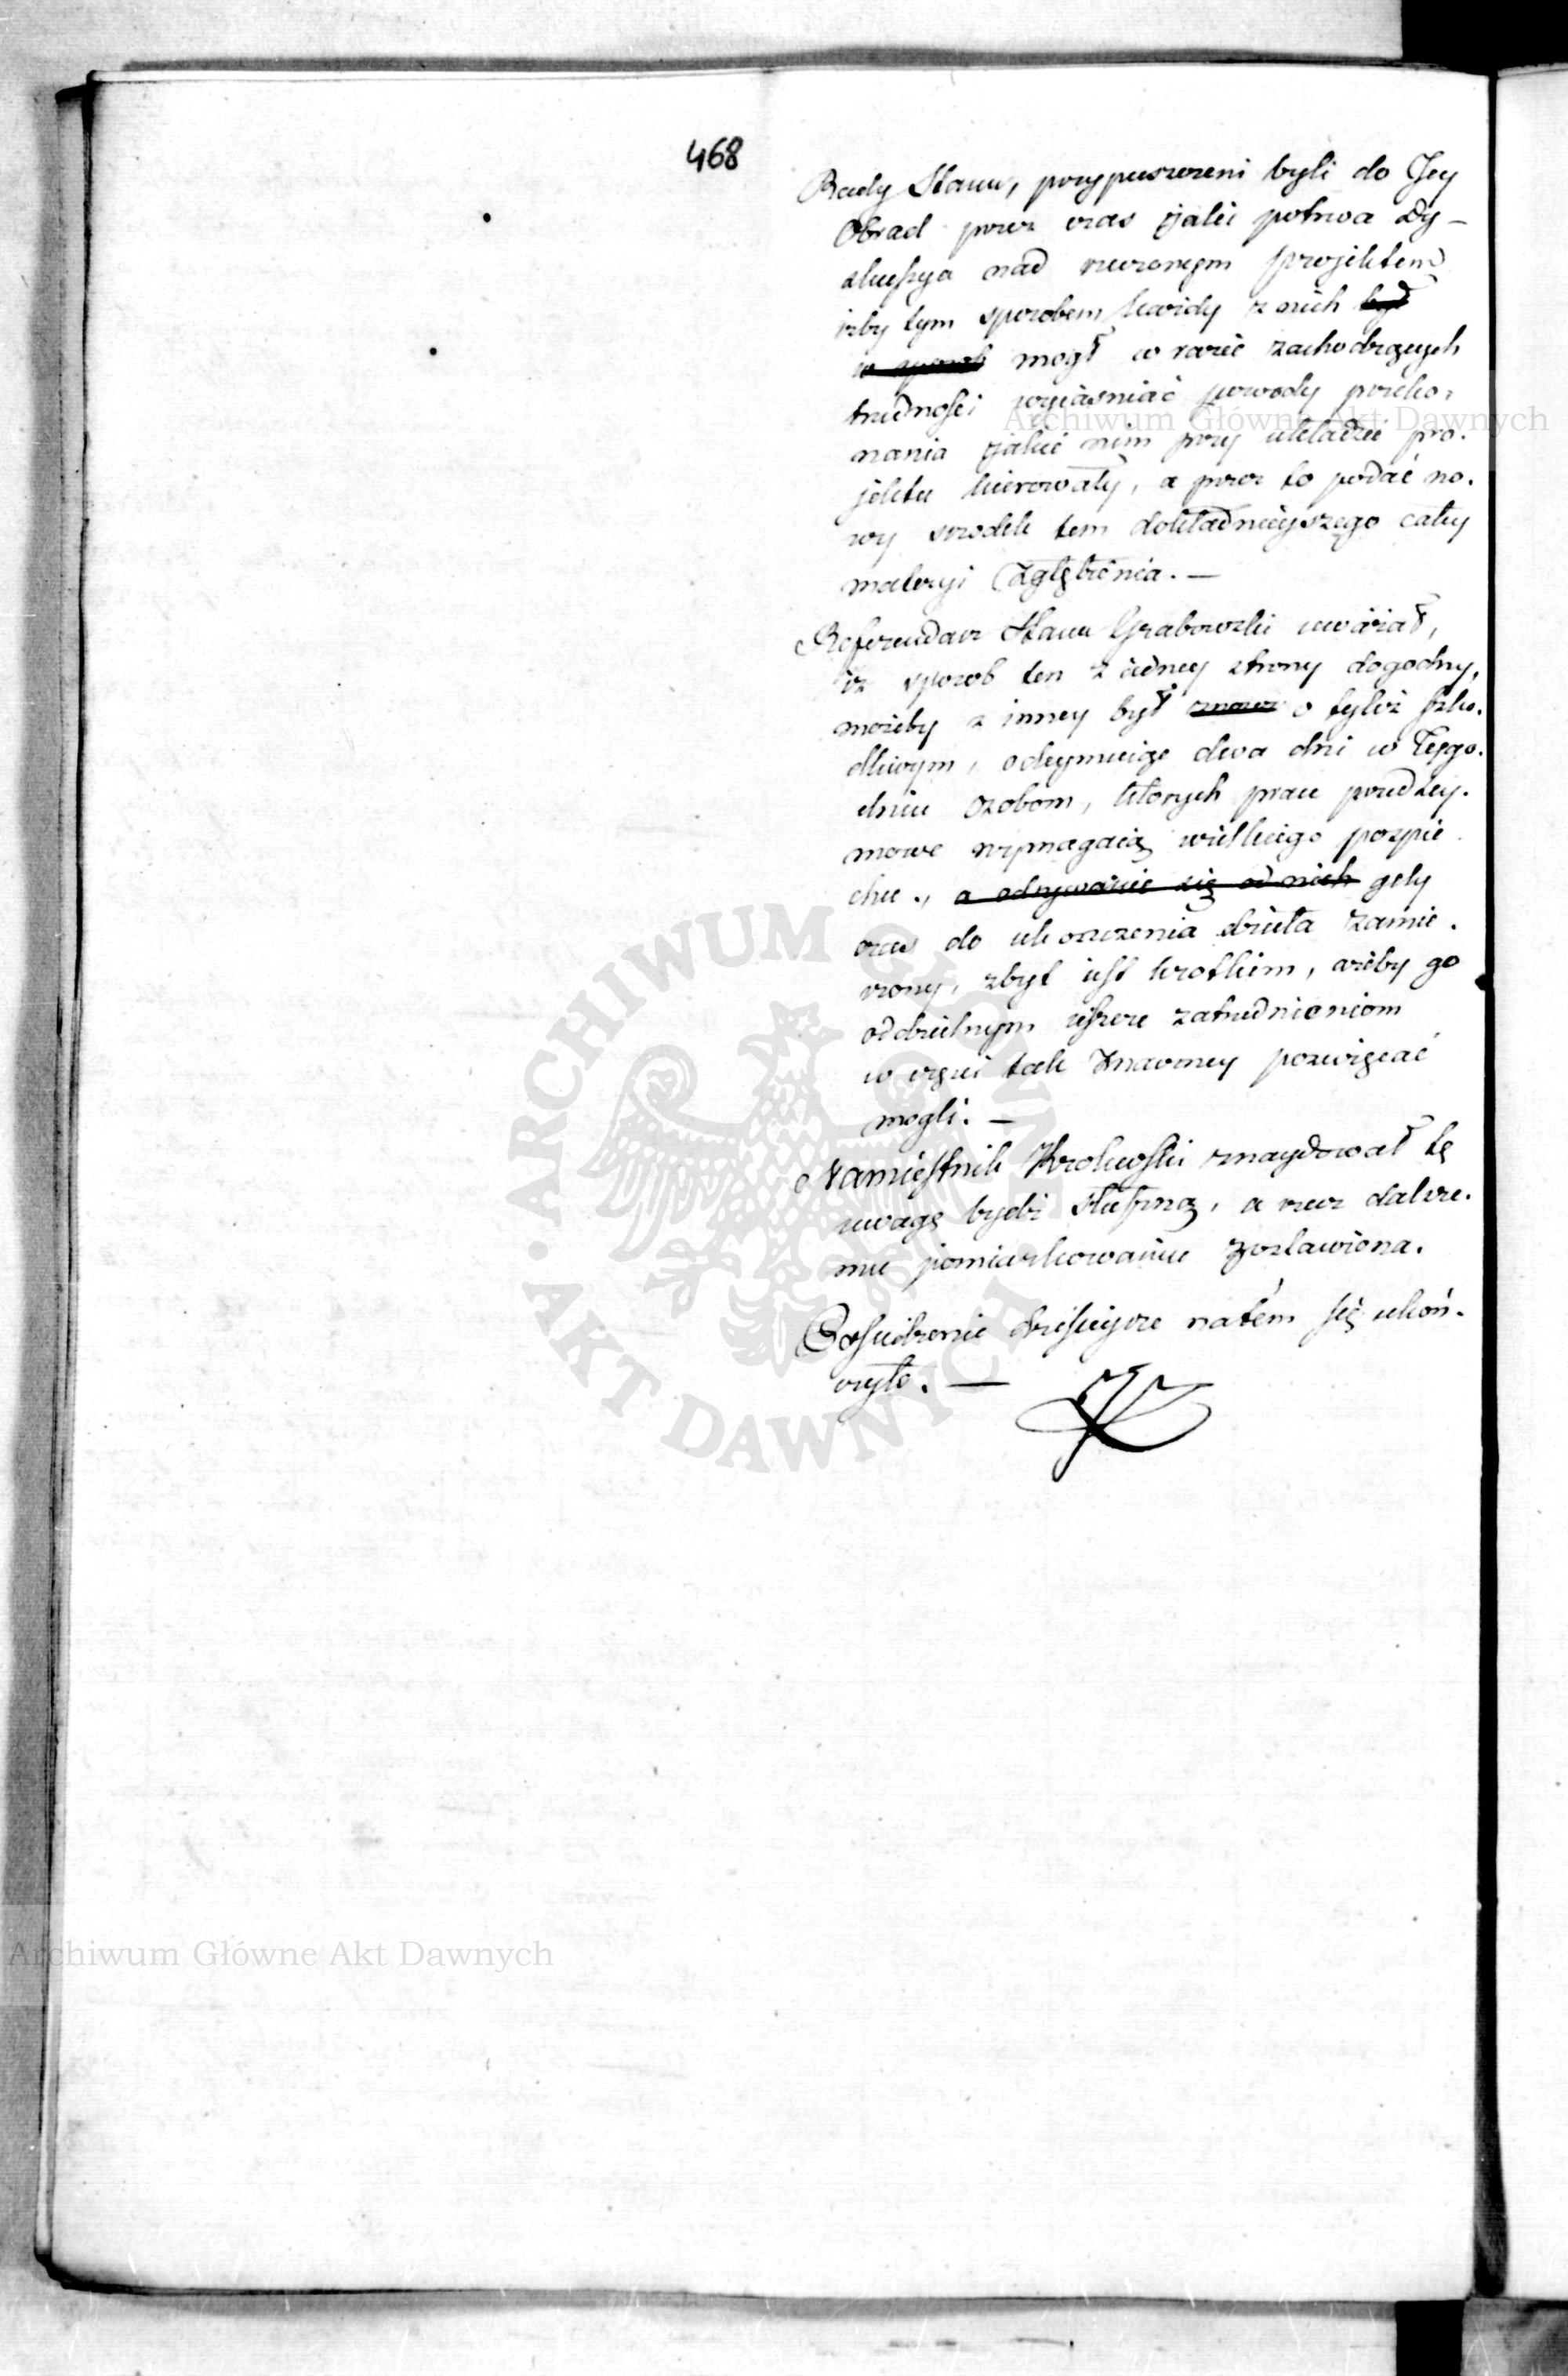 468
Rady Stanu, przypuszczeni byli do Jey
Obrad przez czas jaki potrwa Dy-
skussya nad rzeczonym projektem
izby tym sposobem każdy z nich był
w sposob mogł w razie zachodzących
trudności wyiaśniać powody przeko-
nania jakie nim przy układzie pro-
jektu kierowały, a przez to podać no-
wy srodek tem dokładnieyszego całey
materyi zgłębienia. —
Referendarz Stanu Grabowski uważał,
iż sposob ten z iedney strony dogodny,
możeby z inney był znowu o tyleż szko-
dliwym, odeymuiąc dwa dni w Tygo-
dniu osobom, ktorych prace przedsey-
mowe wymagaią wielkiego pospie
chu., a odrywanie się od nich gdy
czas do ukończenia dzieła zamie-
rzony, zbyt iest krotkiem, ażeby go
oddzielnym ieszcze zatrudnieniom
w części tak znaczney poświęcać
mogli. —
Namiestnik Krolewski znaydował tę
uwagę bydź słuszną, a rzecz dalsze-
mu pomiarkowaniu zostawiona.
Posiedzenie dzisieysze natém się ukoń-
czyło. —
Archiwum Główne Akt Dawnych
ARCHIWUM GŁÓWNE
AKT DAWNYCH
Archiwum Główne Akt Dawnych